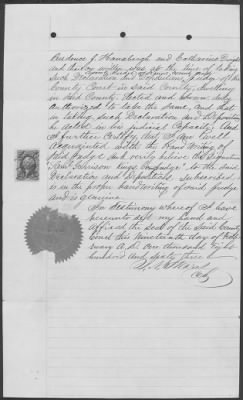 Prudence J. Honabaugh and Catharine
and that on written was at the time of taking
such Declaration and Depositions, a Judge of the
County Court in said County, dwelling
in said County, Elected and Sworn and duly
authorized to take the same, and that
in taking such Declaration and Depositions
he acted in his judicial capacity. And
I further Certify that I am well
Acquainted with the Hand Writing of
said Judge and verily believe the signature
to the said
Declaration and Depositions subscribed
is in the proper handwriting of said Judge
and is genuine.
In Testimony whereof I have
hereunto set my hand and
affixed the seal of the said County
Court this Nineteenth day of
A.D. One thousand Eight
hundred and Sixty three
Clk